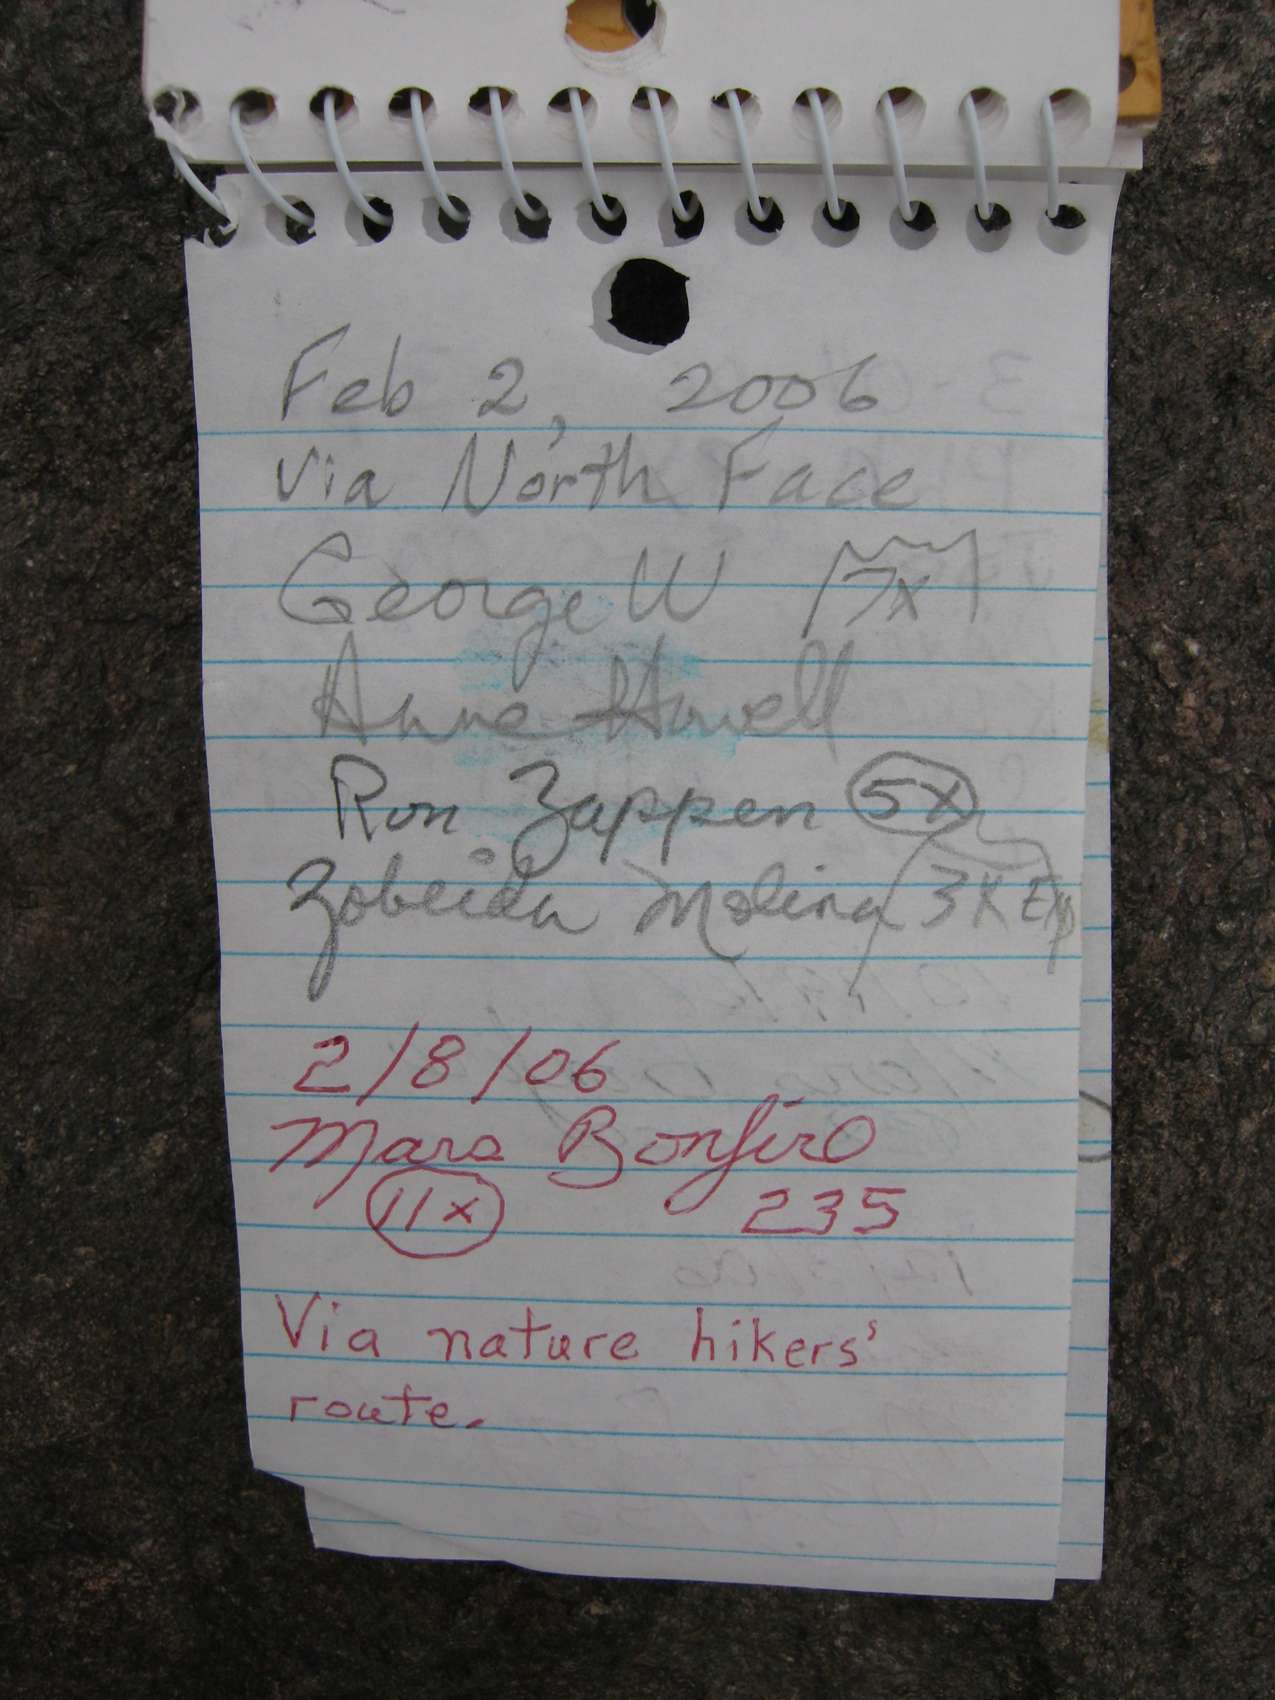 Feb 2, 2006
via North Face
George W 7x
Anne Howell
Ron Zappen 5x
Zobeida Molina 3x Exp
2/8/06
Mars Bonfire
11x 235
Via nature hikers'
route.